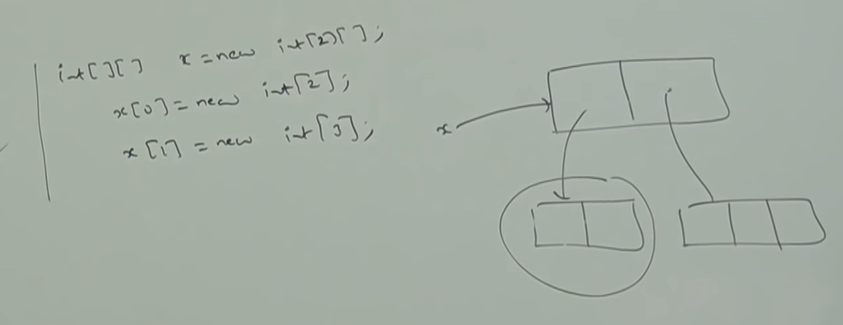 int[][] x = new int[2][];
x[0] = new int[2];
x[1] = new int[3];
x